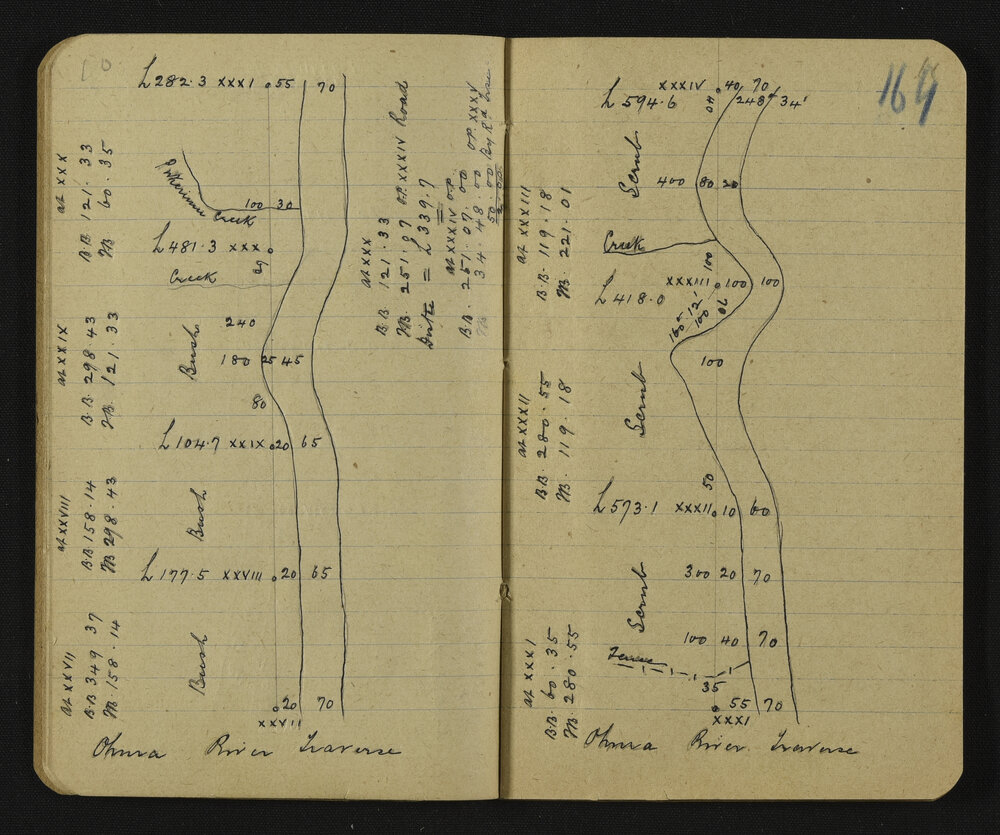 L 282.3 XXXI 55 70
100 30
Creek
L 481.3 XXX
29
Creek
240
Bush
180 25 45
80
L 104.7 XXIX 20 65
Bush
L 177.5 XXVIII 20 65
Bush
20 70
XXVII
Ohura River Traverse
at XXX
B.B. 121.33
M 60.35
at XXIX
B.B. 298.43
M. 121.33
at XXVIII
B.B. 158.14
M 298.43
at XXVII
B.B. 349.37
M. 158.14
at XXX
B.B. 121.33
M. 251.07 O.P. XXXIV Road
Distce = L 339.7
at XXXIV O.P.
B.B. 251.07.00 O.P. XXXV
M 34.48.00 by Rd
50.00
164
XXXIV 40 70
L 594.6 40 248° 34'
Scrub
400 80 20
Creek
100
XXXIII 100 100
L 418.0
160° 12'
100 70
100
Scrub
50
L 573.1 XXXII 10 60
300 20 70
Scrub
100 40 70
Fence
35
55 70
XXXI
Ohura River Traverse
at XXXIII
B.B. 119.18
M. 221.01
at XXXII
B.B. 280.55
M. 119.18
at XXXI
B.B. 60.35
M 280.55